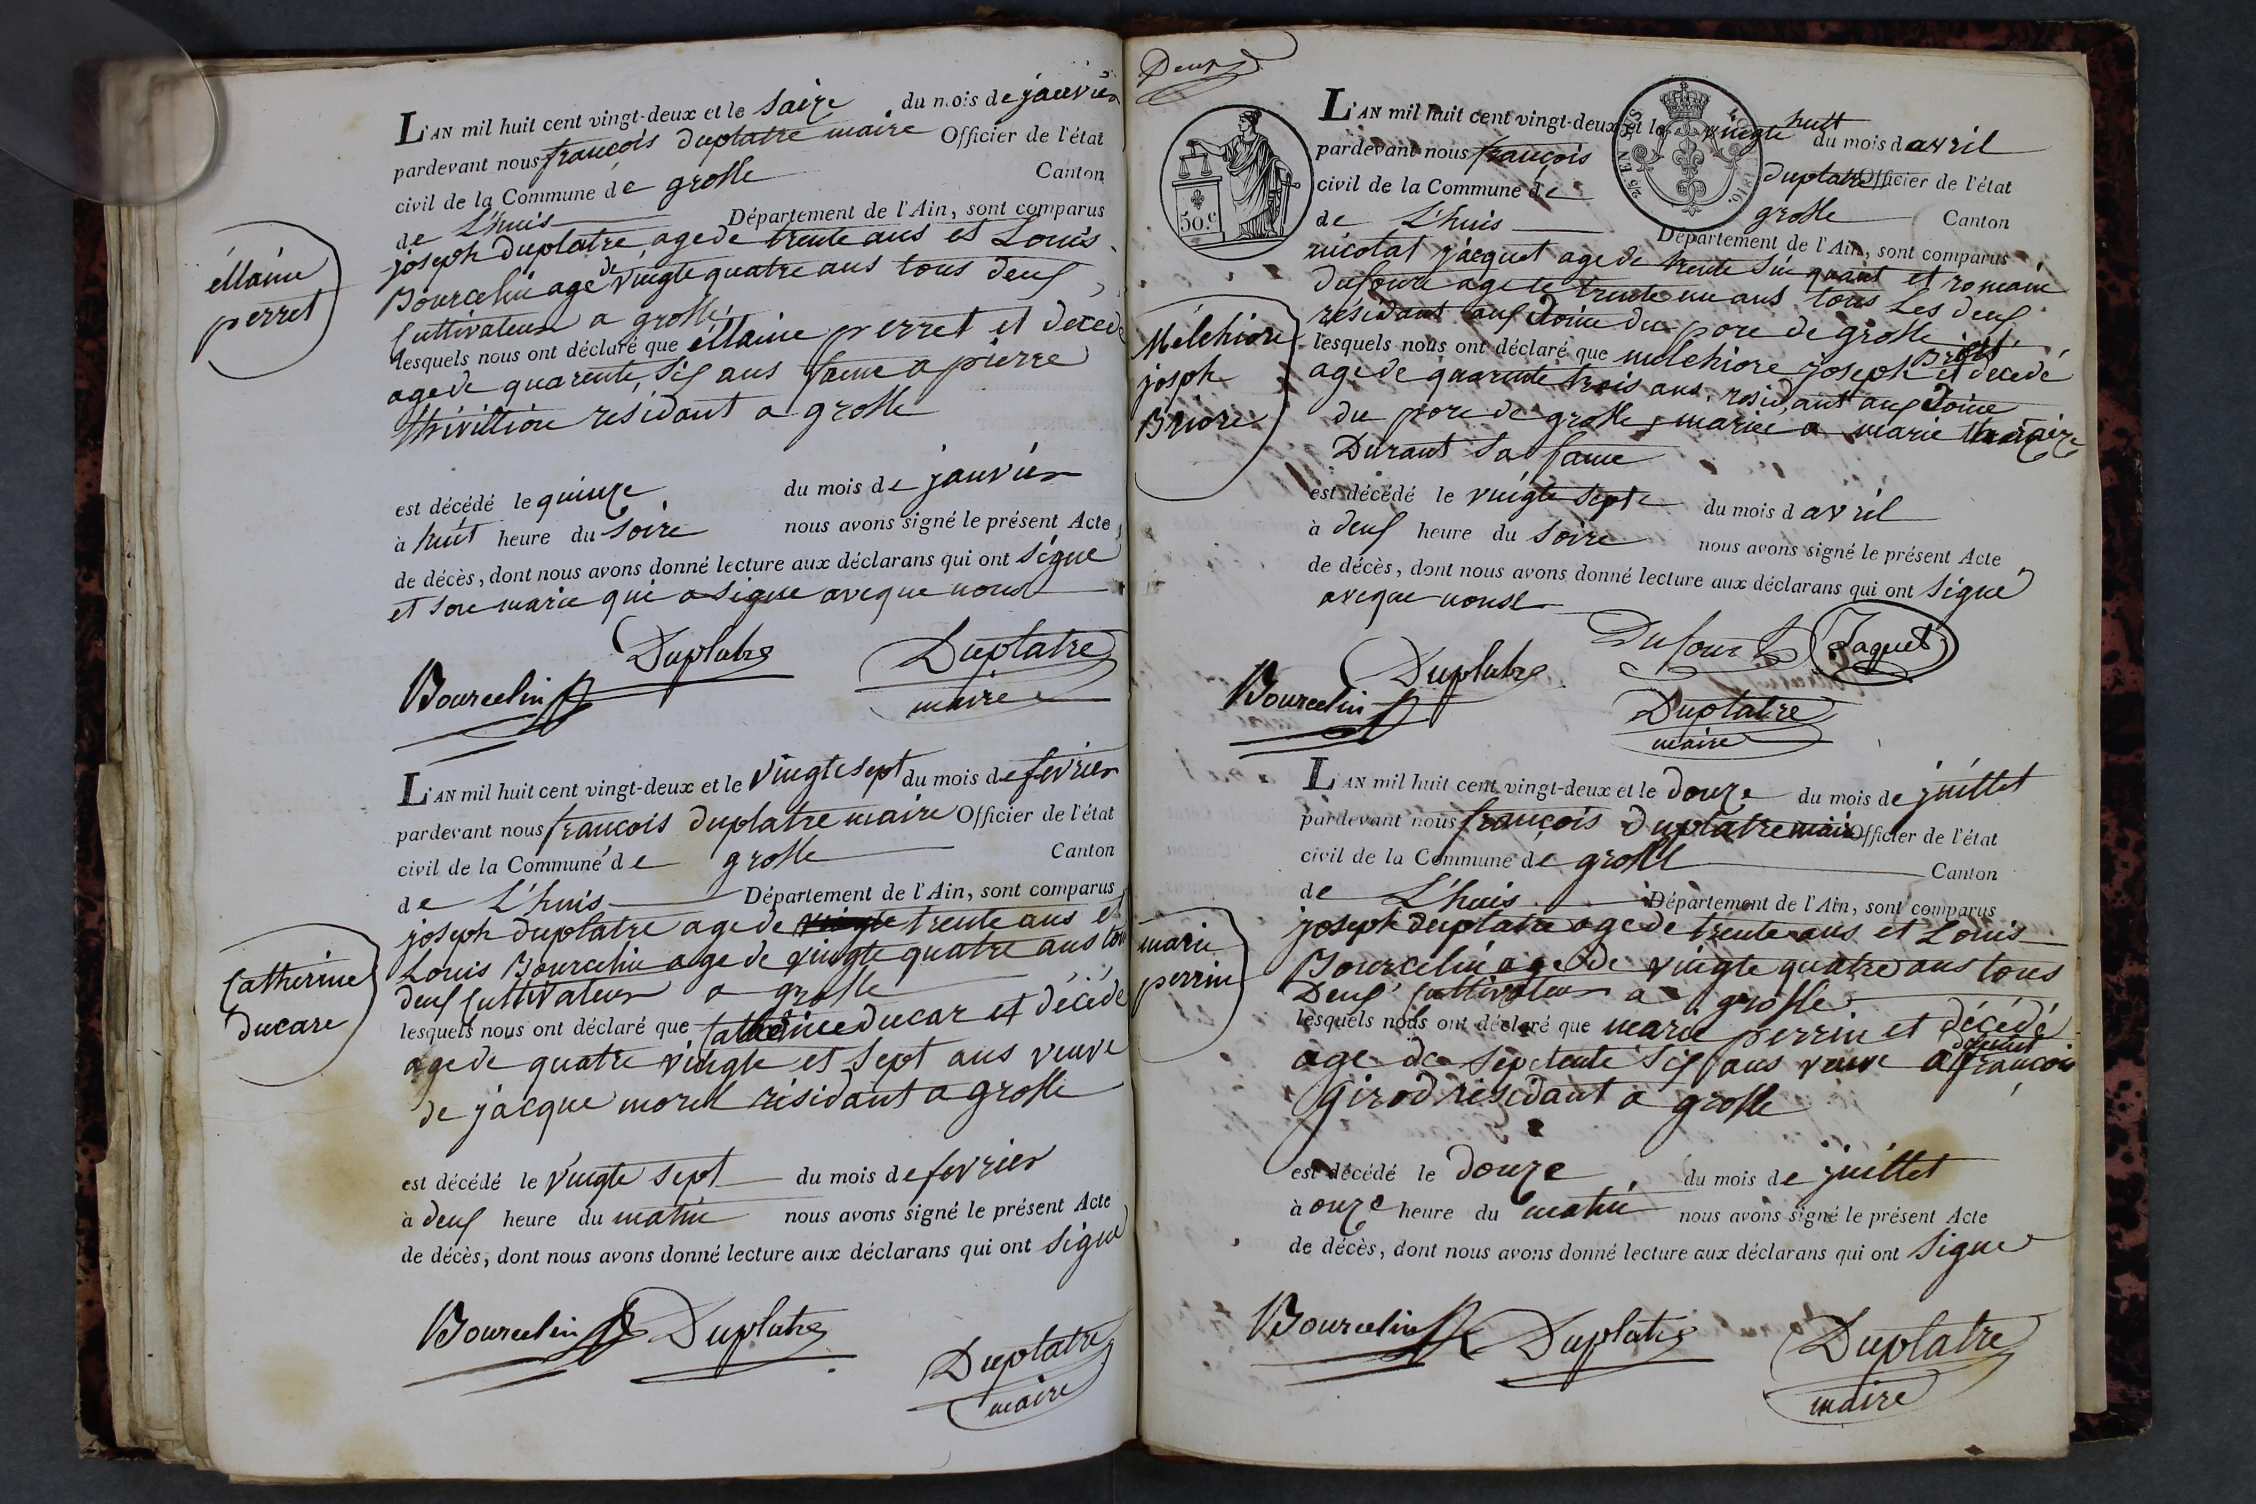 L'AN mil huit cent vingt-deux et le saize du mois de janvier
pardevant nous françois duplatre maire Officier de l'état
civil de la Commune de grosle Canton
de L'huis Département de l'Ain, sont comparus
joseph duplatre age de trente ans et Louis
Bourcelin age de vingte quatre ans tous deux
Cultivateur a grosle
lesquels nous ont déclaré que éllaine perret et decede
age de quarente six ans fame a pierre
thivillion residant a grosle
éllaine
perret
est décédé le quinze du mois de janvier
à huit heure du soire nous avons signé le présent Acte
de décès, dont nous avons donné lecture aux déclarans qui ont signe
et son marie qui a signe aveque nous
Duplatre Duplatre
Bourcelin maire
L'AN mil huit cent vingt-deux et le vingte sept du mois de fevrier
pardevant nous françois duplatre maire Officier de l'état
civil de la Commune de grosle Canton
de L'huis Département de l'Ain, sont comparus
joseph duplatre age de trente ans et
Louis Bourcelin age de vingte quatre ans tous
deux Cultivateur a grosle
lesquels nous ont déclaré que Catherine ducar et décéde
age de quatre vingte et sept ans veuve
de jacque morel résidant a grosle
Catherine
ducare
est décédé le vingte sept du mois de fevrier
à deux heure du matin nous avons signé le présent Acte
de décès, dont nous avons donné lecture aux déclarans qui ont signe
Bourcelin Duplatre
Duplatre
maire
Deux
L'AN mil huit cent vingt-deux et le vingte huit du mois d avril
pardevant nous françois duplatre Officier de l'état
civil de la Commune de grosle Canton
de L'huis Département de l'Ain, sont comparus
nicolat jacquet age de trente et romain
dufour age de trente un ans tous Les deux
résidant aux du pore de grosle
lesquels nous ont déclaré que melchiore joseph et decedé
age de quarente trois ans, residant aux
du pore de grosle, mariée a marie
Durant sa fame
50.c
Melchiore
joseph
Briore
est décédé le vingte sept du mois d avril
à deux heure du soire nous avons signé le présent Acte
de décès, dont nous avons donné lecture aux déclarans qui ont signe
aveque nous
Dufour Jaquet
Duplatre
Bourcelin Duplatre
maire
L'AN mil huit cent vingt-deux et le douze du mois de juillet
pardevant nous françois duplatre maire Officier de l'état
civil de la Commune de grosle Canton
de L'huis Département de l'Ain, sont comparus
joseph duplatre age de trente ans et Louis
Bourcelin age de vingte quatre ans tous
Deux Cultivateur a grosle
lesquels nous ont déclaré que marie perrin et décédé
age de septente six ans veuve a françois
Girod résidant a grosle
marie
perrin
est décédé le douze du mois de juillet
à onze heure du matin nous avons signé le présent Acte
de décès, dont nous avons donné lecture aux déclarans qui ont signe
Bourcelin Duplatre Duplatre
maire